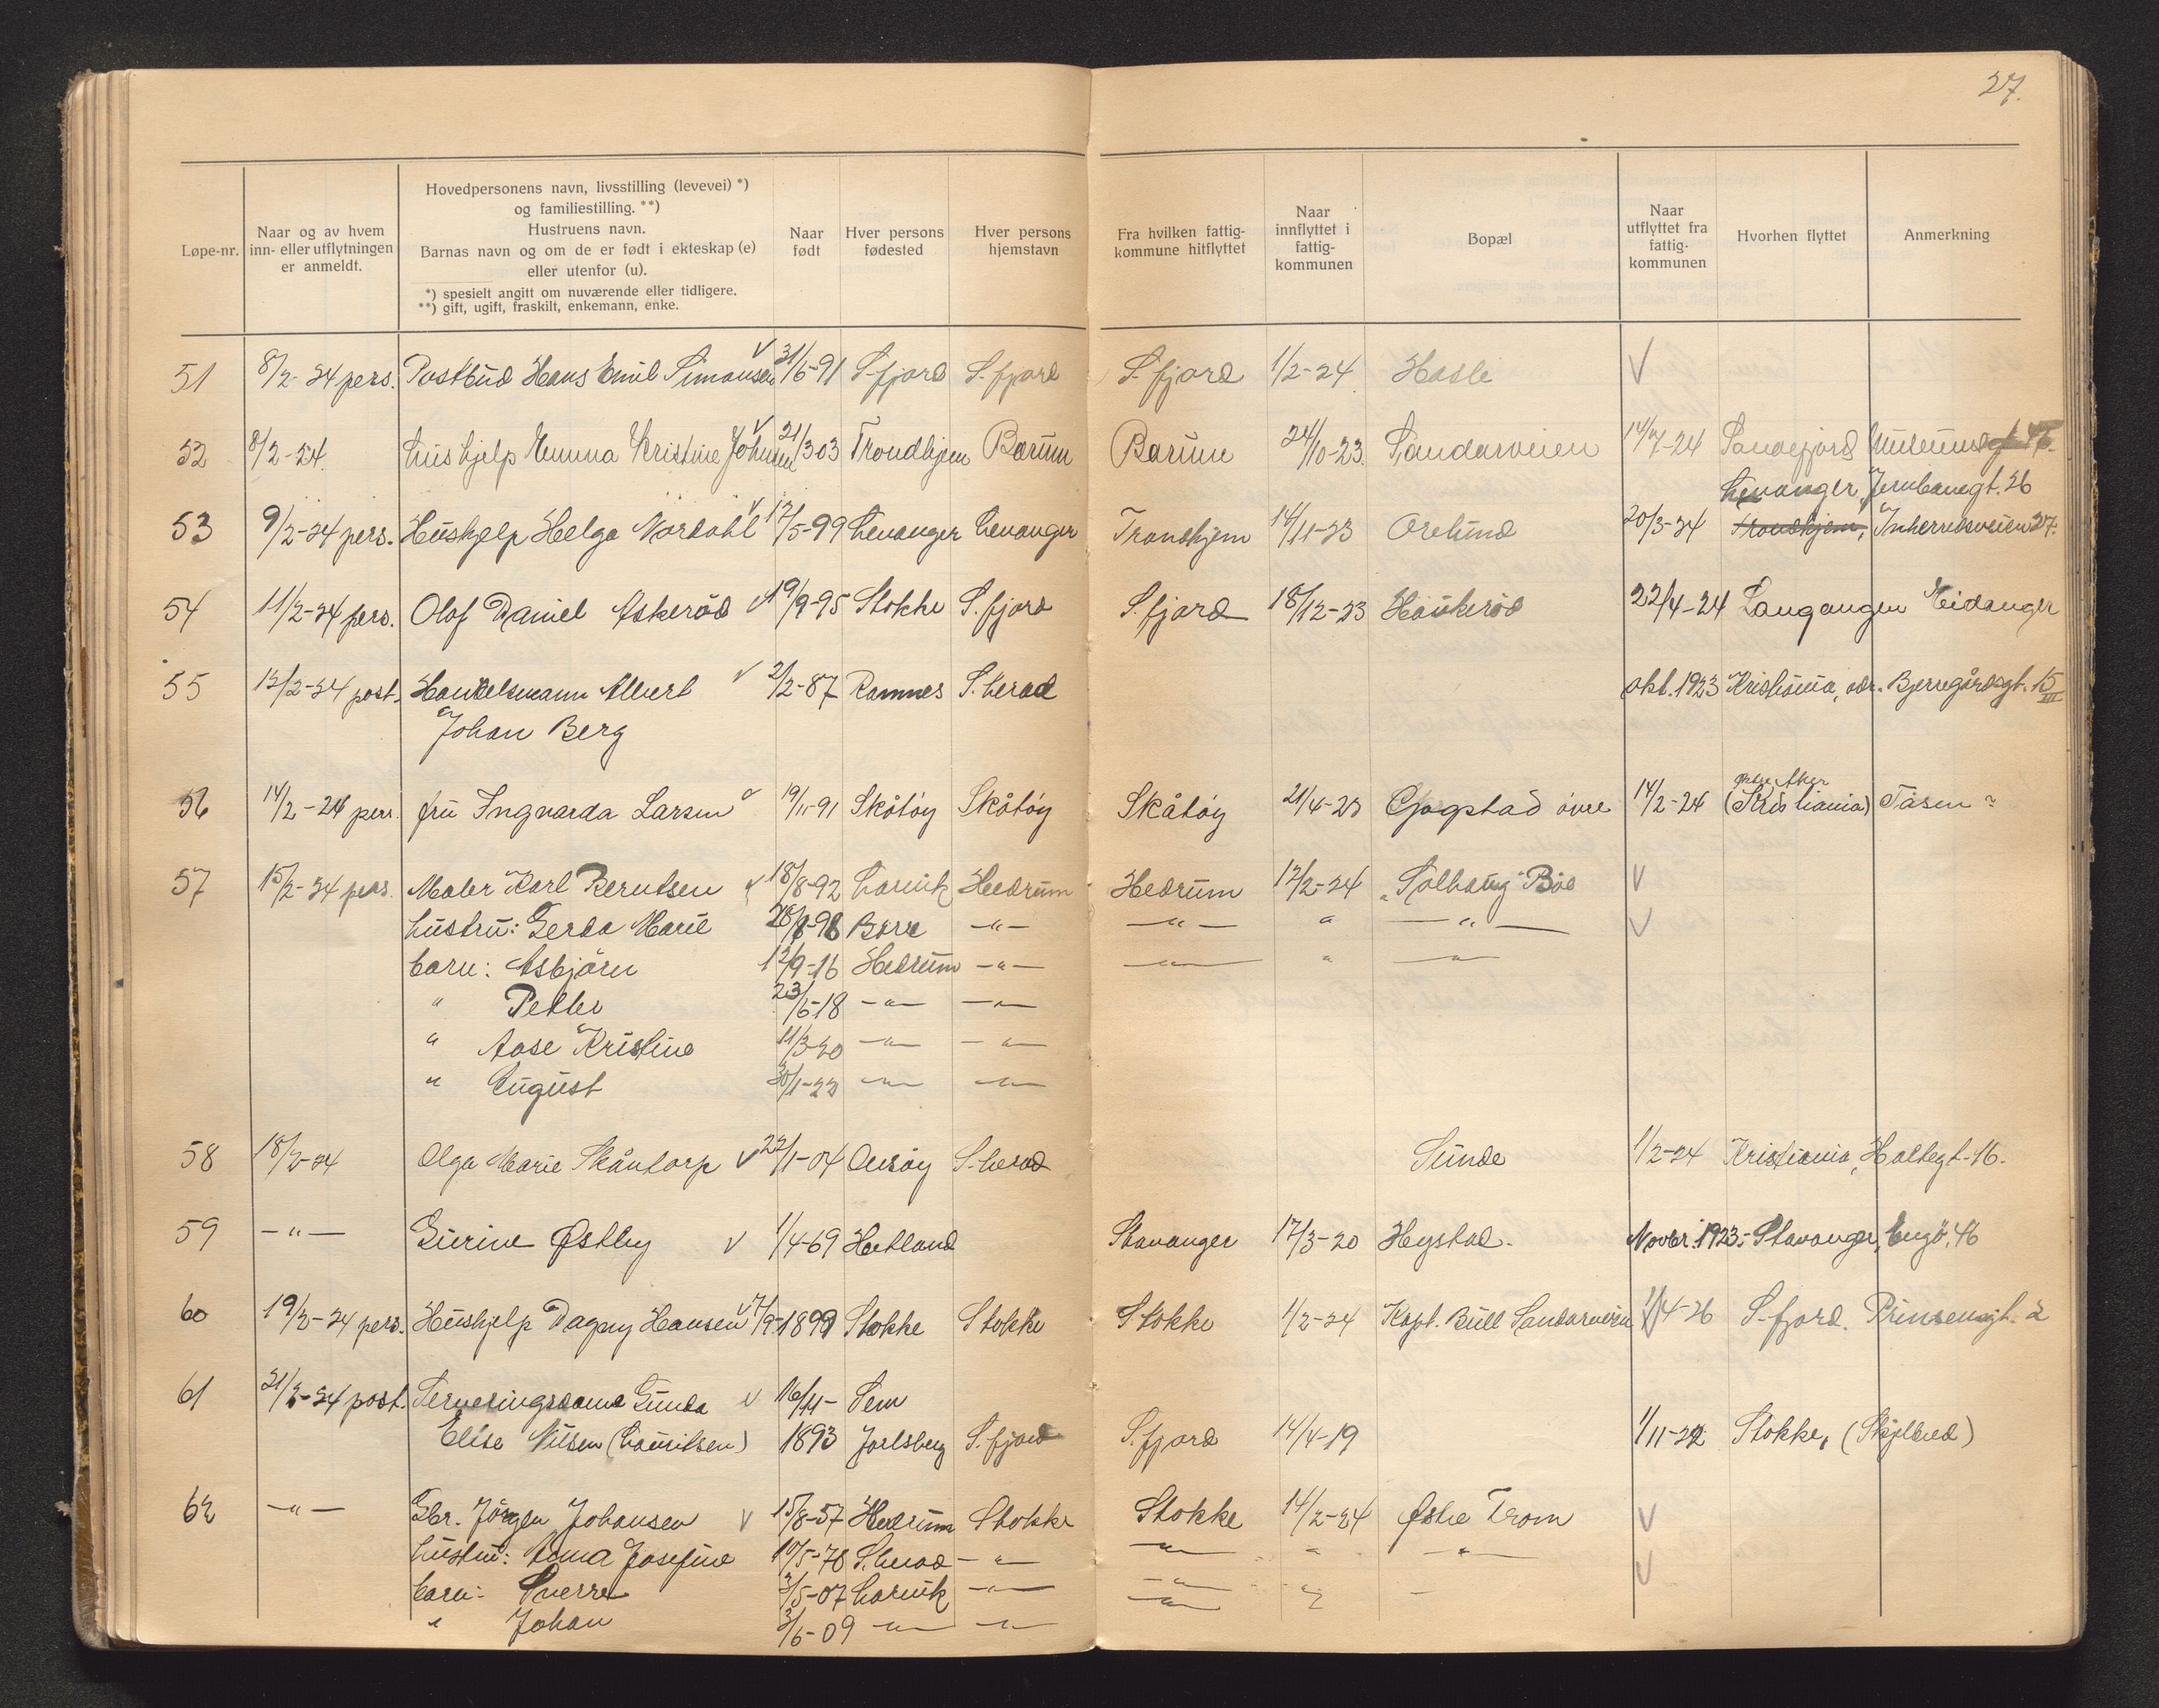 27.
Løpe-nr.
Naar og av hvem
inn- eller utflytningen
er anmeldt.
Hovedpersonens navn, livsstilling (levevei) *)
og familiestilling. **)
Hustruens navn.
Barnas navn og om de er født i ekteskap (e)
eller utenfor (u).
*) spesielt angitt om nuværende eller tidligere.
**) gift, ugift, fraskilt, enkemann, enke.
Naar
født
Hver persons
fødested
Hver persons
hjemstavn
Fra hvilken fattig-
kommune hitflyttet
Naar
innflyttet i
fattig-
kommunen
Bopæl
Naar
utflyttet fra
fattig-
kommunen
Hvorhen flyttet
Anmerkning
51 8/2-24 pers. Postbud Hans Emil Simonsen 31/6-91 S.fjord S.fjord S.fjord 1/2-24 Hasle
52 8/2-24. hushjelp Emma Kristine Johnsen 21/3 03 Trondhjem Bærum Bærum 24/10-23 Sandarveien 14/7-24 Sandefjord
Levanger, Jernbanegt. 26
53 9/2-24 pers. Hushjelp Helga Nordahl 12/5-99 Levanger Levanger Trondhjem 14/11-23 Orelund 20/3-24 Trondhjem, Inherredsveien 27.
54 11/2-24 pers. Olof Daniel Askeröd 19/9-95 Stokke S.fjord S.fjord 18/12-23 Haukeröd 22/4-24 Langangen Eidanger
55 12/2-24 post. Handelsmann Albert 2/2-87 Ramnes S.herad okt. 1923 Kristiania, adr. Bjerregårdsgt. 15 III
Johan Berg
Aker
56 14/2-24 pers. fru Ingvarda Larsen 19/11-91 Skåtöy Skåtöy Skåtöy 21/4-23 Gjogstad övre 14/2-24 (Kristiania) Tåsen
57 15/2-24 pers. Maler Karl Berntsen 18/8-92 Larvik Hedrum Hedrum 12/2-24 "Solhaug" Böe
hustru: Gerda Marie 28/8-98 Borre -"- -"- " -"-
barn: Asbjörn 12/9-16 Hedrum -"- -"- " -"-
" Petter 23/6-18 -"- -"-
" Aase Kristine 11/3-20 -"- -"-
" August 30/1-22 -"- -"-
58 18/2-24 Olga Marie Skåntorp 22/1-04 Onsöy S.herad Sunde 1/2-24 Kristiania, Holtegt. 16.
59 -"- Gurine Østby 1/4-69 Hetland Stavanger 17/3-20 Heystad. Novbr. 1923. Stavanger, Engö. 46
60 19/2-24 pers. Hushjelp Dagny Hansen 7/9-1899 Stokke Stokke Stokke 1/2-24 Kapt. Bull Sandarveien 1/4-26 S.fjord. Prinsensgt. 2
61 21/2-24 post. Serveringsdame Gunda 16/11- Sem
Elise Nilsen (Lauritsen) 1893 Jarlsberg S.fjord S.fjord 14/4-19 1/11-22 Stokke, (Skjelbred)
62 -"- Gbr. Jörgen Johansen 15/8-57 Hedrum Stokke Stokke 14/2-24 Østre Trom
hustru: Anna Josefine 10/5-78 S.herad -"- -"- " -"-
barn: Sverre 3/5-07 Larvik -"- -"- " -
" Johan 3/6-09 -"- -"- -"- "